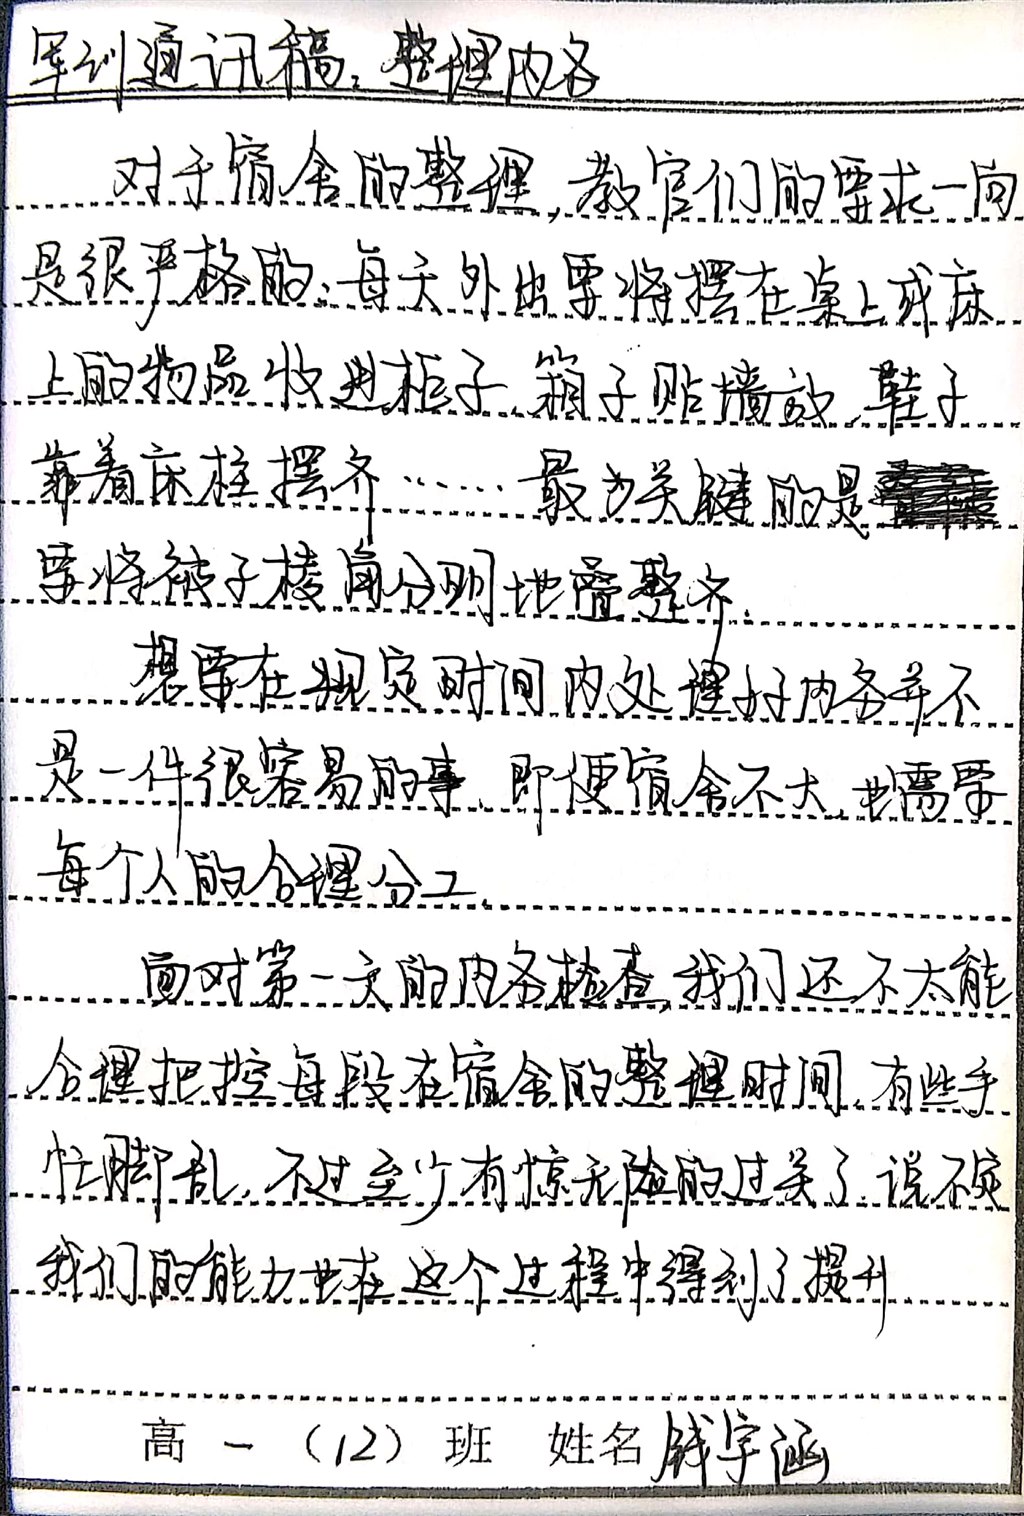 军训通讯稿：整理内务
对于宿舍的整理，教官们的要求一向
是很严格的：每天外出要将摆在桌上或床
上的物品收进柜子，箱子贴墙放，鞋子
靠着床柱摆齐……最为关键的是
要将被子棱角分明地叠整齐．
想要在规定时间内处理好内务并不
是一件很容易的事，即便宿舍不大，也需要
每个人的合理分工．
面对第一天的内务检查，我们还不太能
合理把控每段在宿舍的整理时间，有些手
忙脚乱，不过至少有惊无险的过关了，说不定
我们的能力也在这个过程中得到了提升
高一（12）班 姓名 钱宇涵